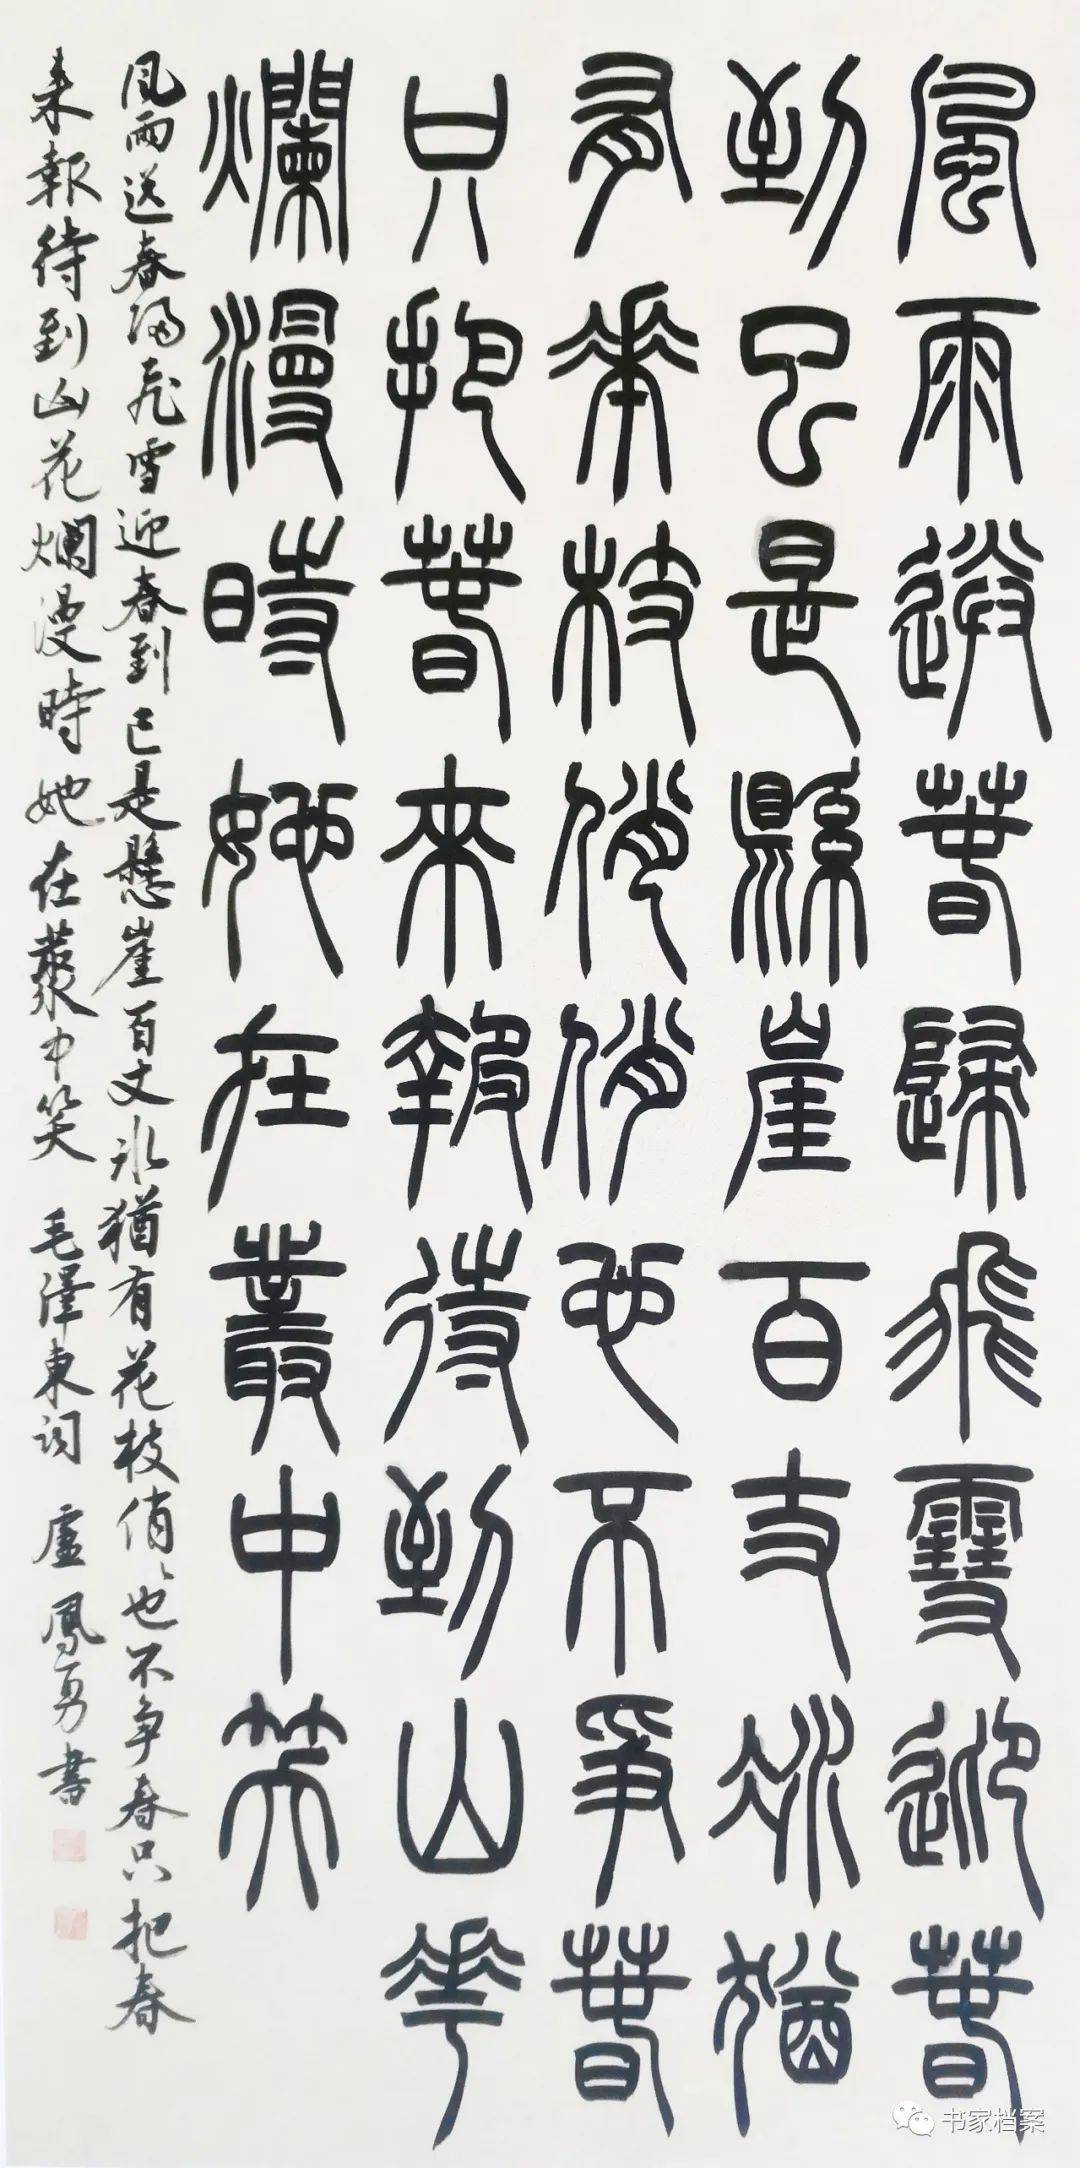 風雨送春歸飛雪迎春
到已是縣崖百丈冰猶
有華枝俏俏也不爭春
只把春來報待到山華
爛漫時她在叢中笑
風雨送春歸飛雪迎春到已是懸崖百丈冰猶有花枝俏、也不争春只把春
来報待到山花爛漫時她在叢中笑 毛澤東詞 盧鳳勇書
书家档案